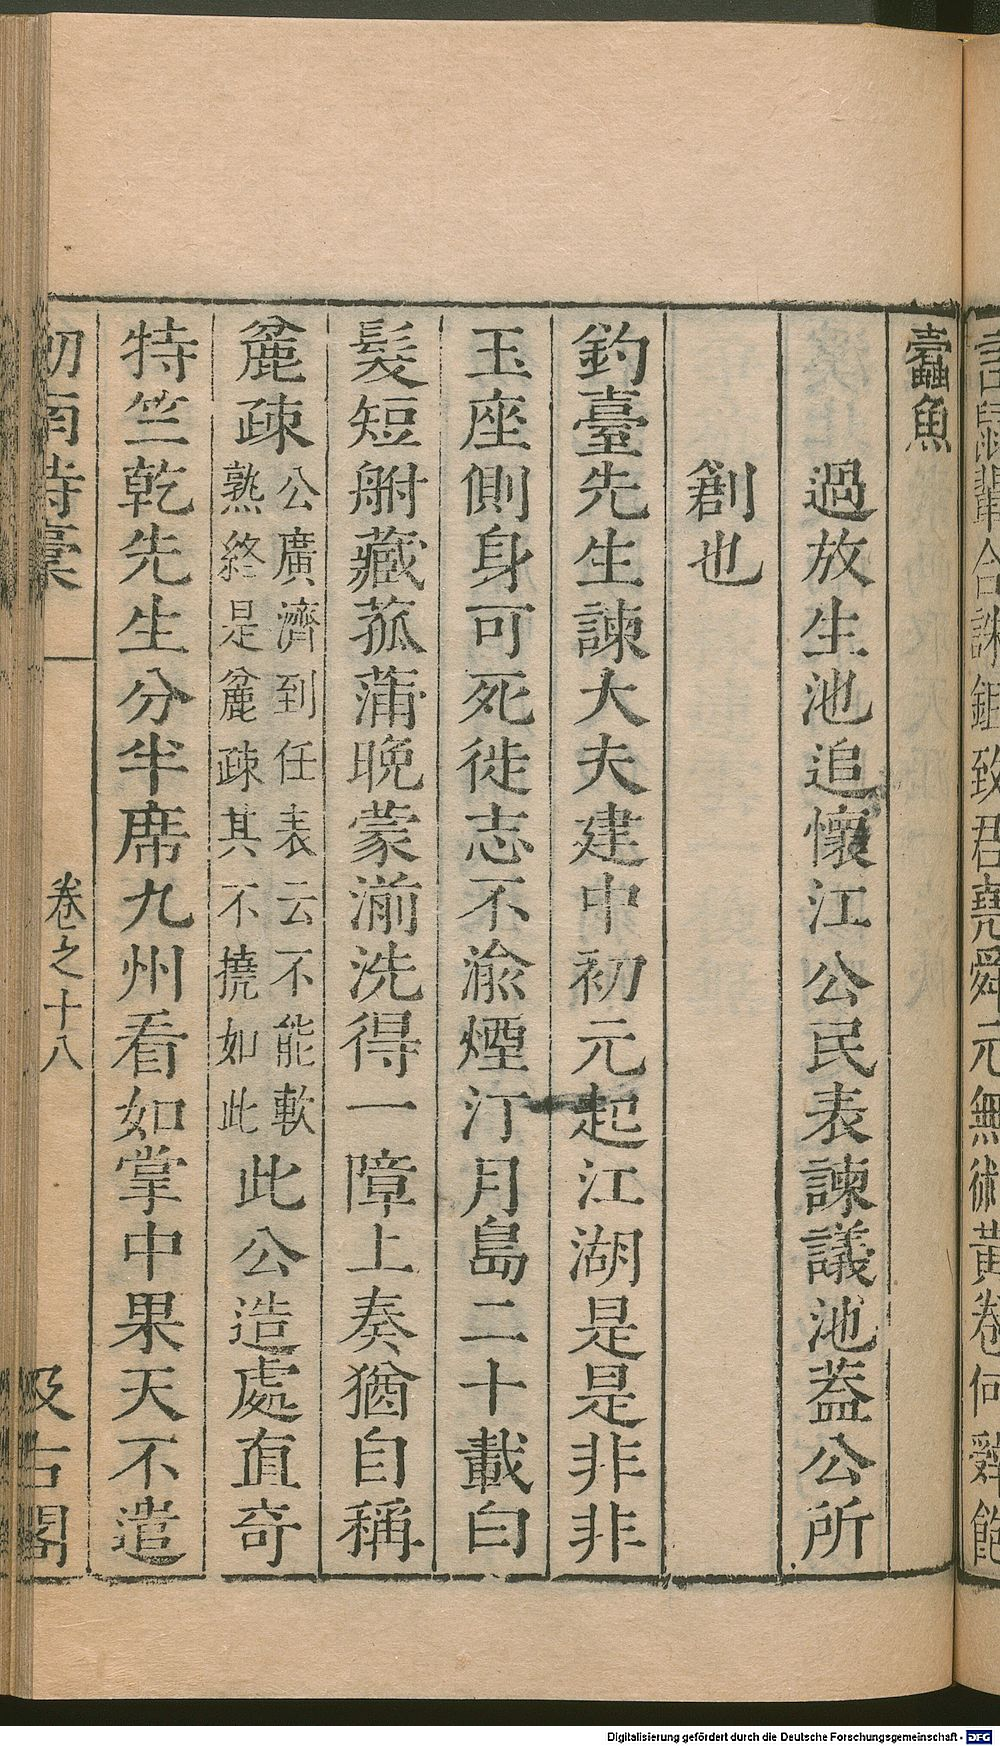 蠹魚
過放生池追懷江公民表諫議池葢公所
創也
釣臺先生諫大夫建中初元起江湖是是非非
玉座側身可死徙志不渝煙汀月島二十載白
髮短舟藏菰蒲晚蒙湔洗得一障上奏猶自稱
麄疎公廣濟到任表云不能軟熟終是麄疎其不撓如此此公造處直奇
特竺乾先生分半席九州看如掌中果天不遣
初
卷之十八
汲古閣
致君堯舜元無術黃卷何
Digitalisierung gefördert durch die Deutsche Forschungsgemeinschaft - DFG